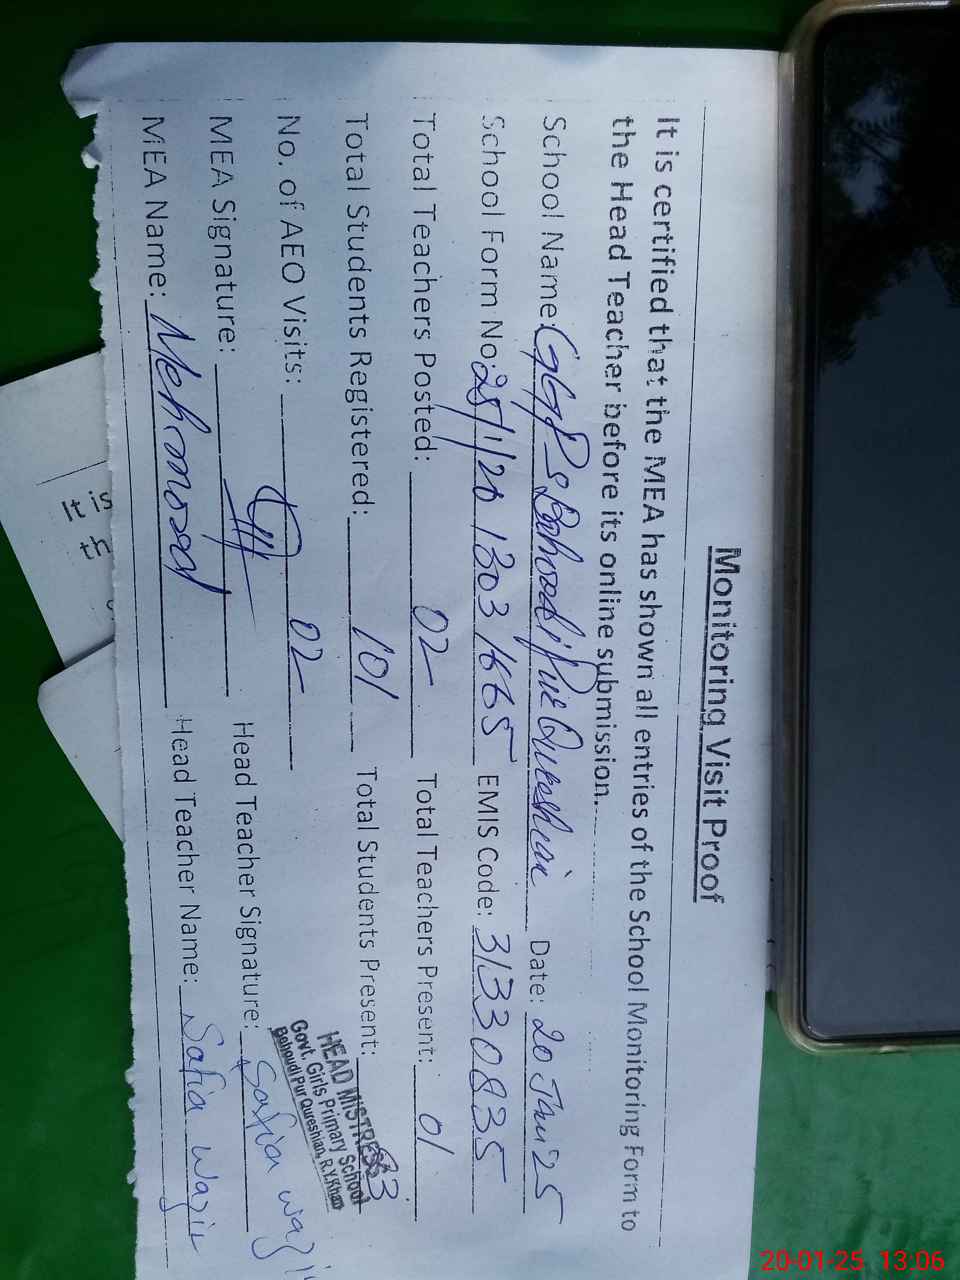 Monitoring Visit Proof
It is certified that the MEA has shown all entries of the School Monitoring Form to
the Head Teacher before its online submission.
School Name: GGPS Bahoodi Pur Qureshian Date: 20 Jan 25
School Form No: EMIS Code: 31330835
Total Teachers Posted: 02 Total Teachers Present: 01
Total Students Registered: 101 Total Students Present: 83
No. of AEO Visits: 02
HEAD MISTRESS
Govt. Girls Primary School
Bahoudi Pur Qureshian, R.Y.Khan
MEA Signature: Head Teacher Signature: Safia
MEA Name: Head Teacher Name: Safia Wazir
It is
th
20-01-25 13:06